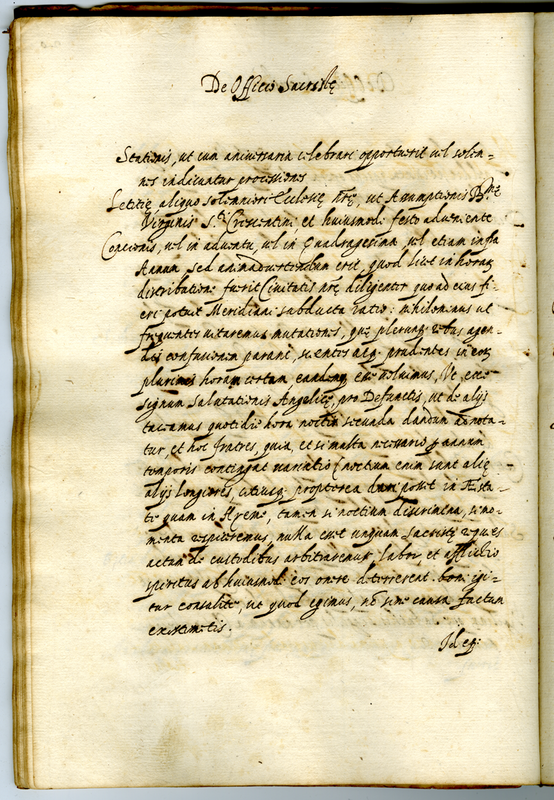 De Officio Sacristę
Stationis, ut cum aniversaria celebrari opportuerit vel solem=
nes indicantur processiones
Letitię aliquo solemniori Ecclesię nrę, ut Assumptionis Bmę
Virginis S.ti Crescentini et huiusmodi festo adveniente
Concionis, vel in adventu, vel in Quadragesima, vel etiam infra
Annum. Sed animadvertendum erit, quod licet in horarum
distributione fuerit Civitatis nrę diligenter quoad eius fi=
eri potuit Meridiani subducta ratio: nihilominus ut
frequentes vitaremus mutationes, quę plerumq rebus agen=
dis confusionem parant, scientes neq. prudentes in eos
plurimes horam certam, eandemq esse voluimus, Ut ecce
signum salutationis Angelicę, pro Defunctis, ut de alijs
taceamus quotidie hora noctis secunda dandum adnota=
tur, et hoc fratres, quia, et si multa necessario per annum
temporis contingat variatio (noctium enim sunt alię
alijs longiores, citiusq propterea dari posset in Ęsta=
te quam in Hyeme, tamen si noctium discrimina, si mo=
menta respiceremus, nulla esset unquam sacristę requies
actum de custodibus arbitraremur, labor, et afflictio
spiritus ab huiusmodi eos onere deterrerent. boni igi=
tur consulite, ut quod egimus, nō sine causa factum
existimetis.
Id eq: